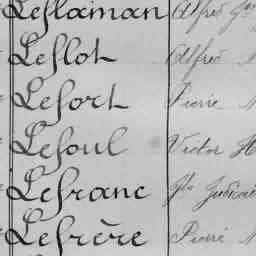 Leflaman Alfred
Leflot Alfred
Lefort Pierre
Lefoul Victor
Lefranc
Lefrère Pierre